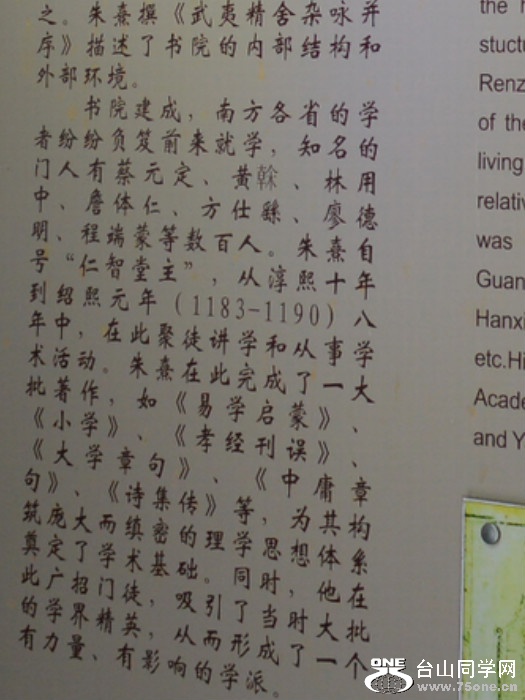 之。朱熹撰《武夷精舍杂咏并
序》描述了书院的内部结构和
外部环境。
书院建成，南方各省的学
者纷纷负笈前来就学，知名的
门人有蔡元定、黄榦、林用
中、詹体仁、方仕繇、廖德
明、程端蒙等数百人。朱熹自
号“仁智堂主”，从淳熙十年
到绍熙元年(1183-1190)八
年中，在此聚徒讲学和从事学
术活动。朱熹在此完成了一大
批著作，如《易学启蒙》、
《小学》、《孝经刊误》、
《大学章句》、《中庸章
句》、《诗集传》等，为其构
筑庞大而缜密的理学思想体系
奠定了学术基础。同时，他在
此广招门徒，吸引了当时大批
的学界精英，从而形成了一个
有力量、有影响的学派。
the
stuctu
Renz
of the
living
relativ
was
Guan
Hanxi
etc.Hi
Acade
and Y
ONE 台山同学网
www.75one.cn